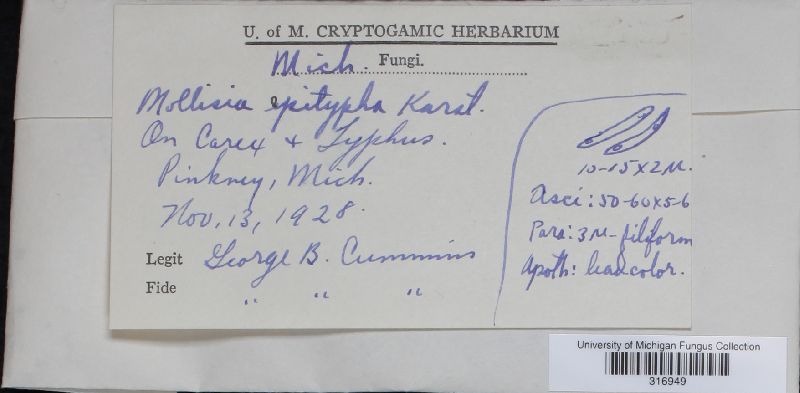 U. of M. CRYPTOGAMIC HERBARIUM
Mich. Fungi.
Mollisia epitypha Karst.
On Carex + Typhus.
Pinkney, Mich.
Nov. 13, 1928.
Legit George B. Cummins
Fide " " "
10-15x2µ.
Asci: 50-60x5-6
Para: 3µ-filiform
Apoth: lead color.
University of Michigan Fungus Collection
316949